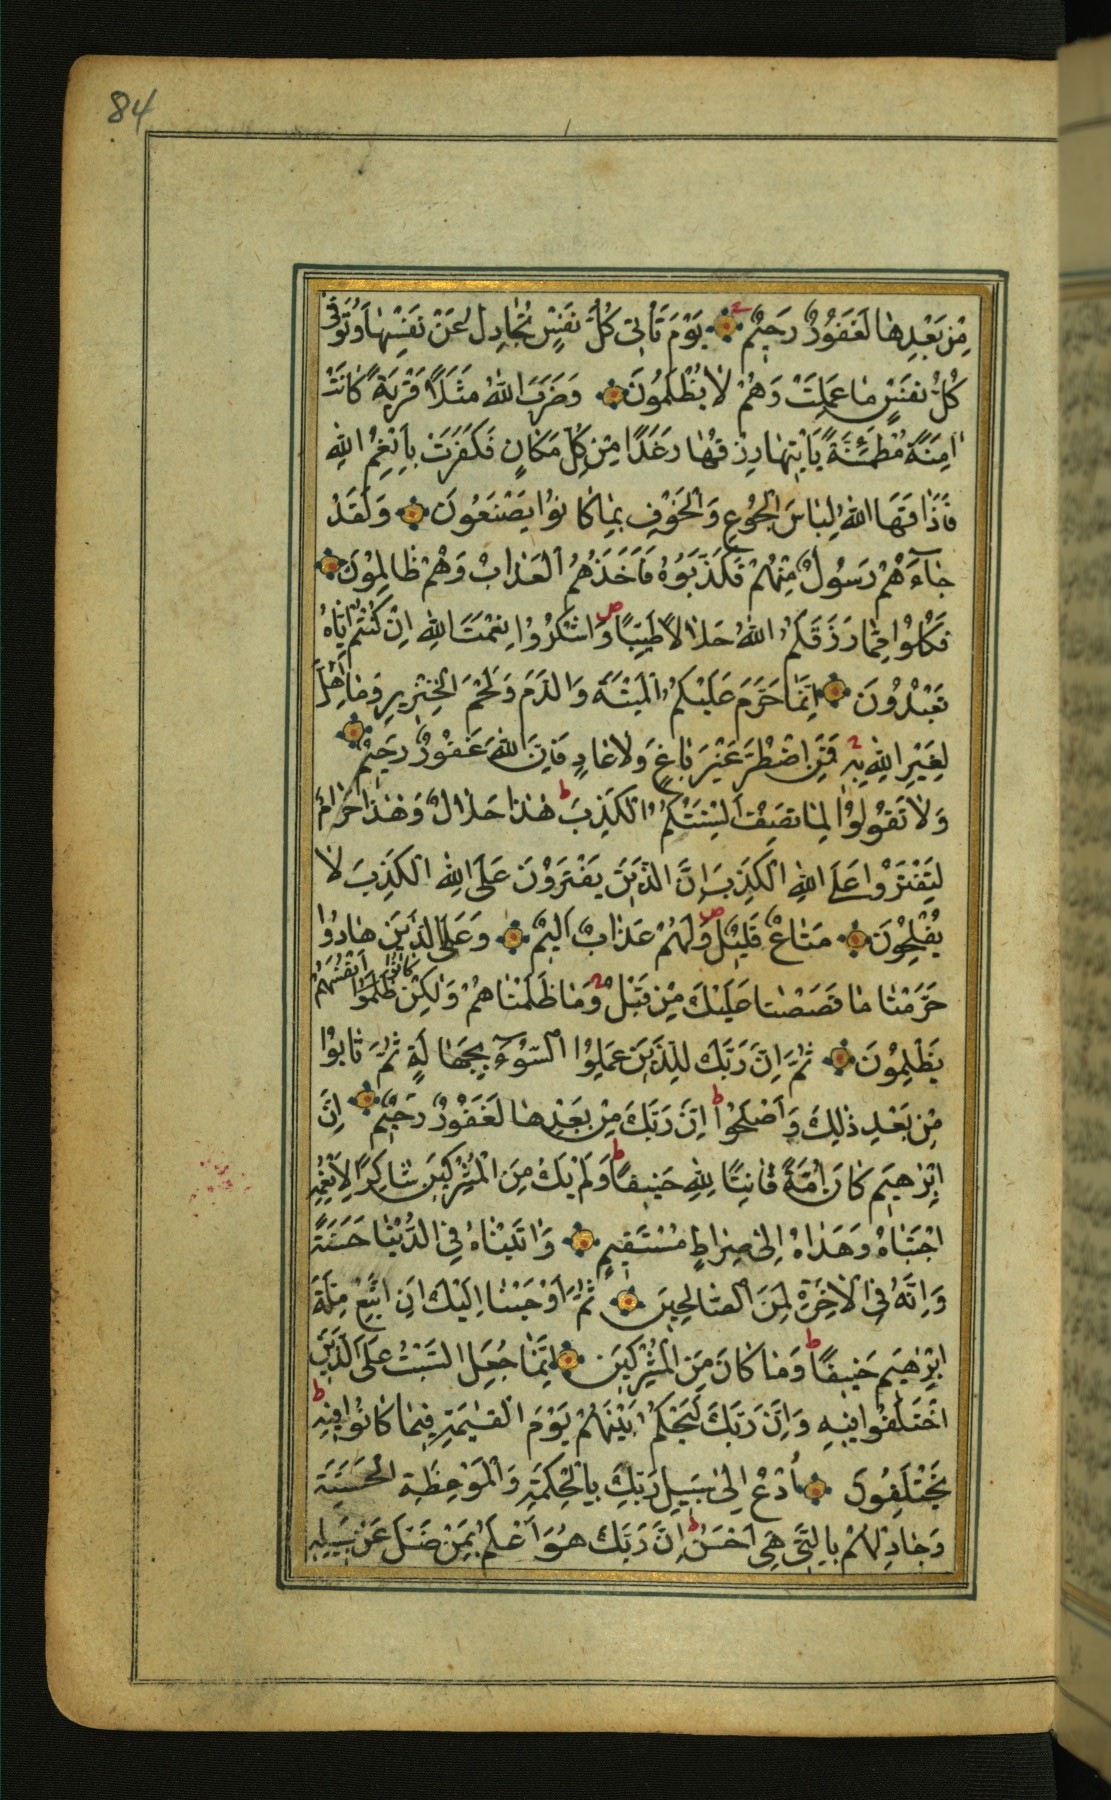 84
مِنْ بَعْدِهٰا لَغَفُورٌ رَحِيْمٌ يَوْمَ تَأْتِى كُلُّ نَفْسٍ تُجٰادِلُ عَنْ نَفْسِهٰا وَتُوَفّٰى
كُلُّ نَفْسٍ مٰا عَمِلَتْ وَهُمْ لٰا يُظْلَمُونَ وَضَرَبَ اللّٰهُ مَثَلًا قَرْيَةً كٰانَتْ
اٰمِنَةً مُطْمَئِنَّةً يَأْتِيهٰا رِزْقُهٰا رَغَدًا مِنْ كُلِّ مَكٰانٍ فَكَفَرَتْ بِاَنْعُمِ اللّٰهِ
فَاَذٰاقَهَا اللّٰهُ لِبٰاسَ الْجُوعِ وَالْخَوْفِ بِمٰا كٰانُوْا يَصْنَعُونَ وَلَقَدْ
جٰاۤءَهُمْ رَسُولٌ مِنْهُمْ فَكَذَّبُوهُ فَاَخَذَهُمُ الْعَذٰابُ وَهُمْ ظٰالِمُوْنَ
فَكُلُوْا مِمّٰا رَزَقَكُمُ اللّٰهُ حَلٰالًا طَيِّبًا ص وَاشْكُرُوْا نِعْمَتَ اللّٰهِ اِنْ كُنْتُمْ اِيّٰاهُ
تَعْبُدُونَ اِنَّمٰا حَرَّمَ عَلَيْكُمُ الْمَيْتَةَ وَالدَّمَ وَلَحْمَ الْخِنْزِيرِ وَمٰا اُهِلَّ
لِغَيْرِ اللّٰهِ بِهِ فَمَنِ اضْطُرَّ غَيْرَ بٰاغٍ وَلٰا عٰادٍ فَاِنَّ اللّٰهَ غَفُوْرٌ رَحِيْمٌ
وَلٰا تَقُوْلُوْا لِمٰا تَصِفُ اَلْسِنَتُكُمُ الْكَذِبَ ط هٰذٰا حَلٰالٌ وَهٰذٰا حَرٰامٌ
لِتَفْتَرُوْا عَلَى اللّٰهِ الْكَذِبَ اِنَّ الَّذِيْنَ يَفْتَرُوْنَ عَلَى اللّٰهِ الْكَذِبَ لٰا
يُفْلِحُوْنَ مَتٰاعٌ قَلِيْلٌ ص وَلَهُمْ عَذٰابٌ اَلِيْمٌ وَعَلَى الَّذِيْنَ هٰادُوْا
حَرَّمْنٰا مٰا قَصَصْنٰا عَلَيْكَ مِنْ قَبْلُ وَمٰا ظَلَمْنٰاهُمْ وَلٰكِنْ ظَلَمُوْا كٰانُوْا اَنْفُسَهُمْ
يَظْلِمُوْنَ ثُمَّ اِنَّ رَبَّكَ لِلَّذِيْنَ عَمِلُوْا السُّوۤءَ بِجَهٰالَةٍ ثُمَّ تٰابُوْا
مِنْ بَعْدِ ذٰلِكَ وَاَصْلَحُوْا ط اِنَّ رَبَّكَ مِنْ بَعْدِهٰا لَغَفُوْرٌ رَحِيْمٌ اِنَّ
اِبْرٰهِيْمَ كٰانَ اُمَّةً قٰانِتًا لِلّٰهِ حَنِيْفًا ط وَلَمْ يَكُ مِنَ الْمُشْرِكِيْنَ شٰاكِرًا لِاَنْعُمِهِ
اجْتَبٰاهُ وَهَدٰاهُ اِلىٰ صِرٰاطٍ مُسْتَقِيْمٍ وَاٰتَيْنٰاهُ فِى الدُّنْيٰا حَسَنَةً
وَاِنَّهُ فِى الْاٰخِرَةِ لَمِنَ الصّٰالِحِيْنَ ثُمَّ اَوْحَيْنٰا اِلَيْكَ اَنِ اتَّبِعْ مِلَّةَ
اِبْرٰهِيْمَ حَنِيْفًا ط وَمٰا كٰانَ مِنَ الْمُشْرِكِيْنَ اِنَّمٰا جُعِلَ السَّبْتُ عَلَى الَّذِيْنَ
اخْتَلَفُوْا فِيْهِ وَاِنَّ رَبَّكَ لَيَحْكُمُ بَيْنَهُمْ يَوْمَ الْقِيٰمَةِ فِيْمٰا كٰانُوْا فِيْهِ ط
يَخْتَلِفُوْنَ اُدْعُ اِلىٰ سَبِيْلِ رَبِّكَ بِالْحِكْمَةِ وَالْمَوْعِظَةِ الْحَسَنَةِ
وَجٰادِلْهُمْ بِالَّتِىْ هِىَ اَحْسَنُ ط اِنَّ رَبَّكَ هُوَ اَعْلَمُ بِمَنْ ضَلَّ عَنْ سَبِيْلِهِ